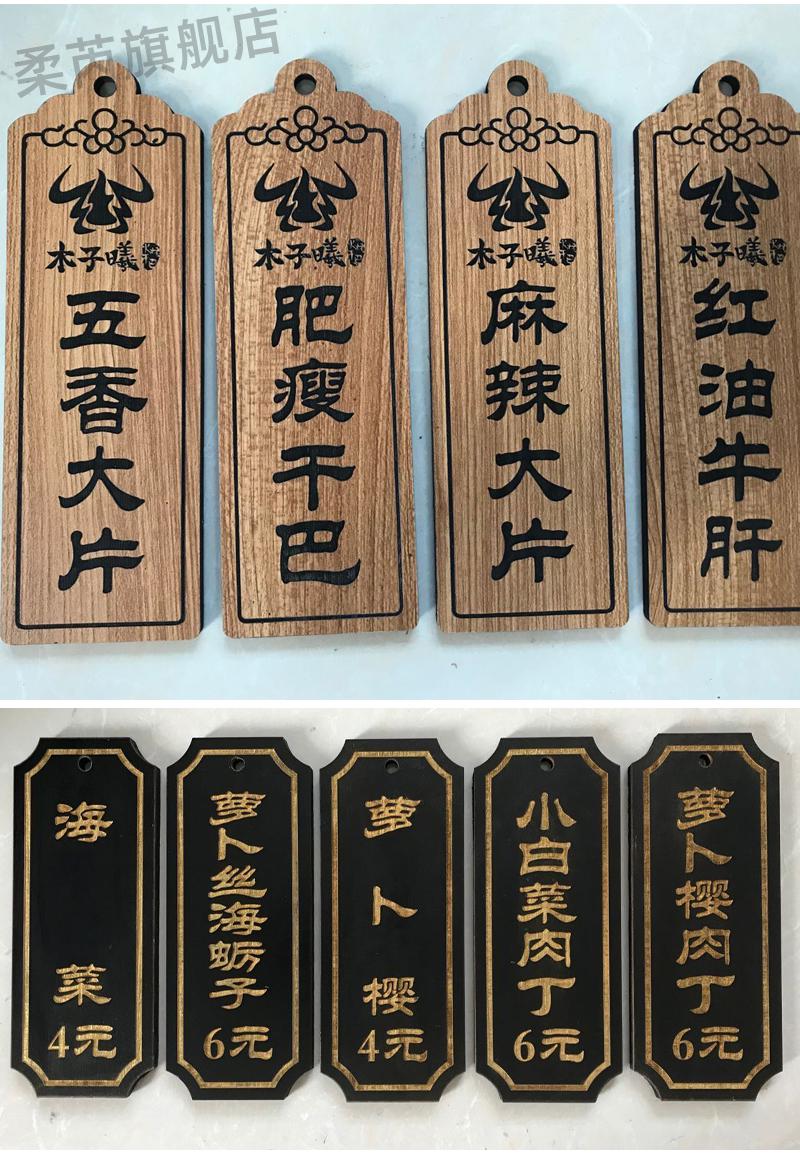 柔茵旗舰店
木子曦
五香大片
木子曦
肥瘦干巴
木子曦
麻辣大片
木子曦
红油牛肝
海菜
4元
萝卜丝海蛎子
6元
萝卜樱
4元
小白菜肉丁
6元
萝卜樱肉丁
6元